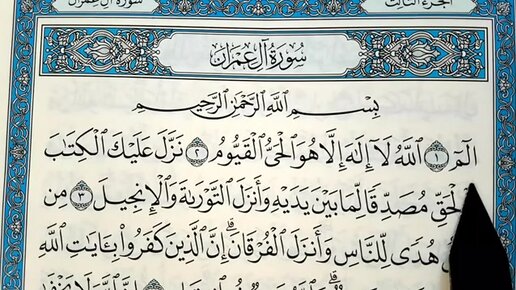 الجزء الثالث
سورة آل عمران
سُورَةُ آلِ عِمْرَانَ
بِسْمِ اللَّهِ الرَّحْمَٰنِ الرَّحِيمِ
الٓمٓ ١ اللَّهُ لَا إِلَٰهَ إِلَّا هُوَ الْحَيُّ الْقَيُّومُ ٢ نَزَّلَ عَلَيْكَ الْكِتَٰبَ
بِالْحَقِّ مُصَدِّقًا لِّمَا بَيْنَ يَدَيْهِ وَأَنزَلَ التَّوْرَىٰةَ وَالْإِنجِيلَ ٣ مِن
هُدًى لِّلنَّاسِ وَأَنزَلَ الْفُرْقَانَ ۗ إِنَّ الَّذِينَ كَفَرُوا۟ بِـَٔايَٰتِ اللَّهِ